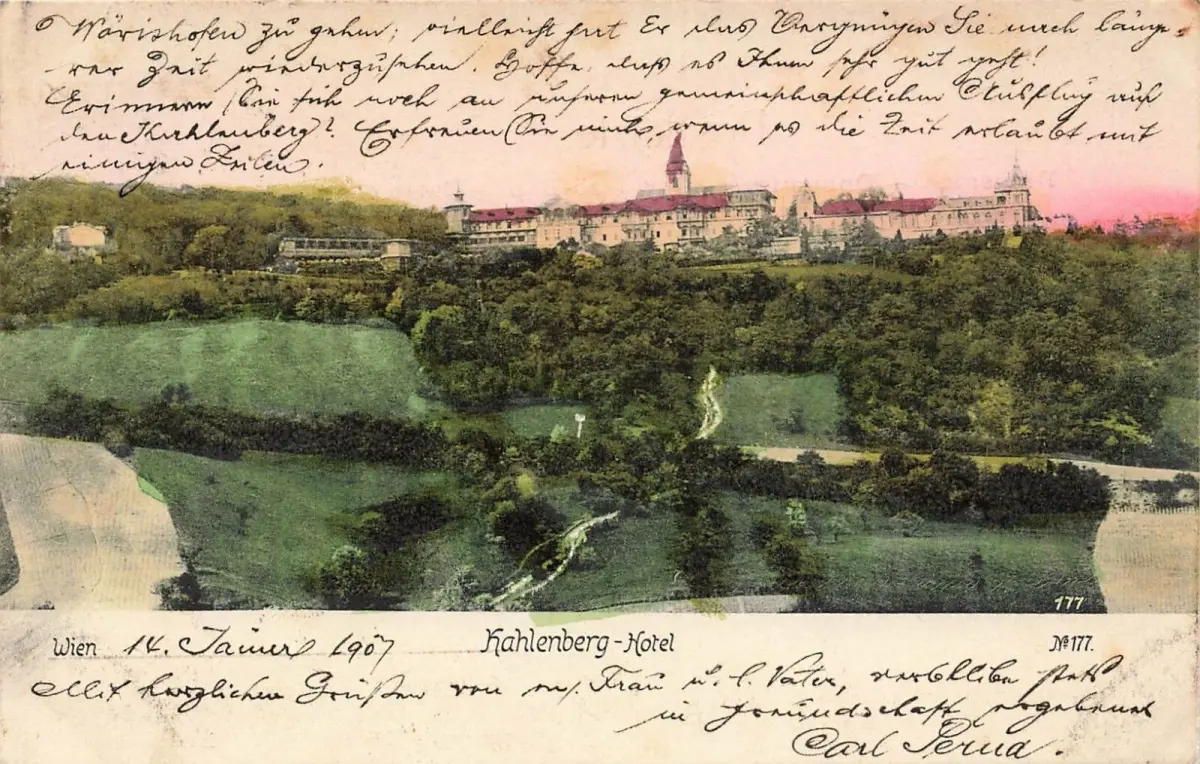 Wörishofen zu gehen; vielleicht hat Er das Vergnügen Sie nach länge-
rer Zeit wiederzusehen. Hoffe, daß es Ihnen sehr gut geht!
Erinnern Sie sich noch an unseren gemeinschaftlichen Ausflug auf
den Kahlenberg? Erfreuen Sie mich, wenn es die Zeit erlaubt mit
einigen Zeilen.
177
Wien 14. Jänner 1907 Kahlenberg-Hotel № 177.
Mit herzlichen Grüßen von m/. Frau u. l. Vater, verbleibe stets
in Freundschaft ergebenst
Carl Perna.